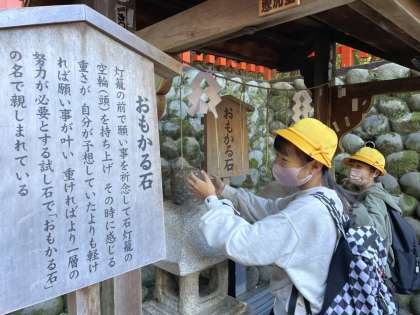 おもかる石
灯籠の前で願い事を祈念して石灯籠の
空輪(頭)を持ち上げ、その時に感じる
重さが、自分が予想していたよりも軽け
れば願い事が叶い、重ければより一層の
努力が必要とする試し石で「おもかる石」
の名で親しまれている
おもかる石